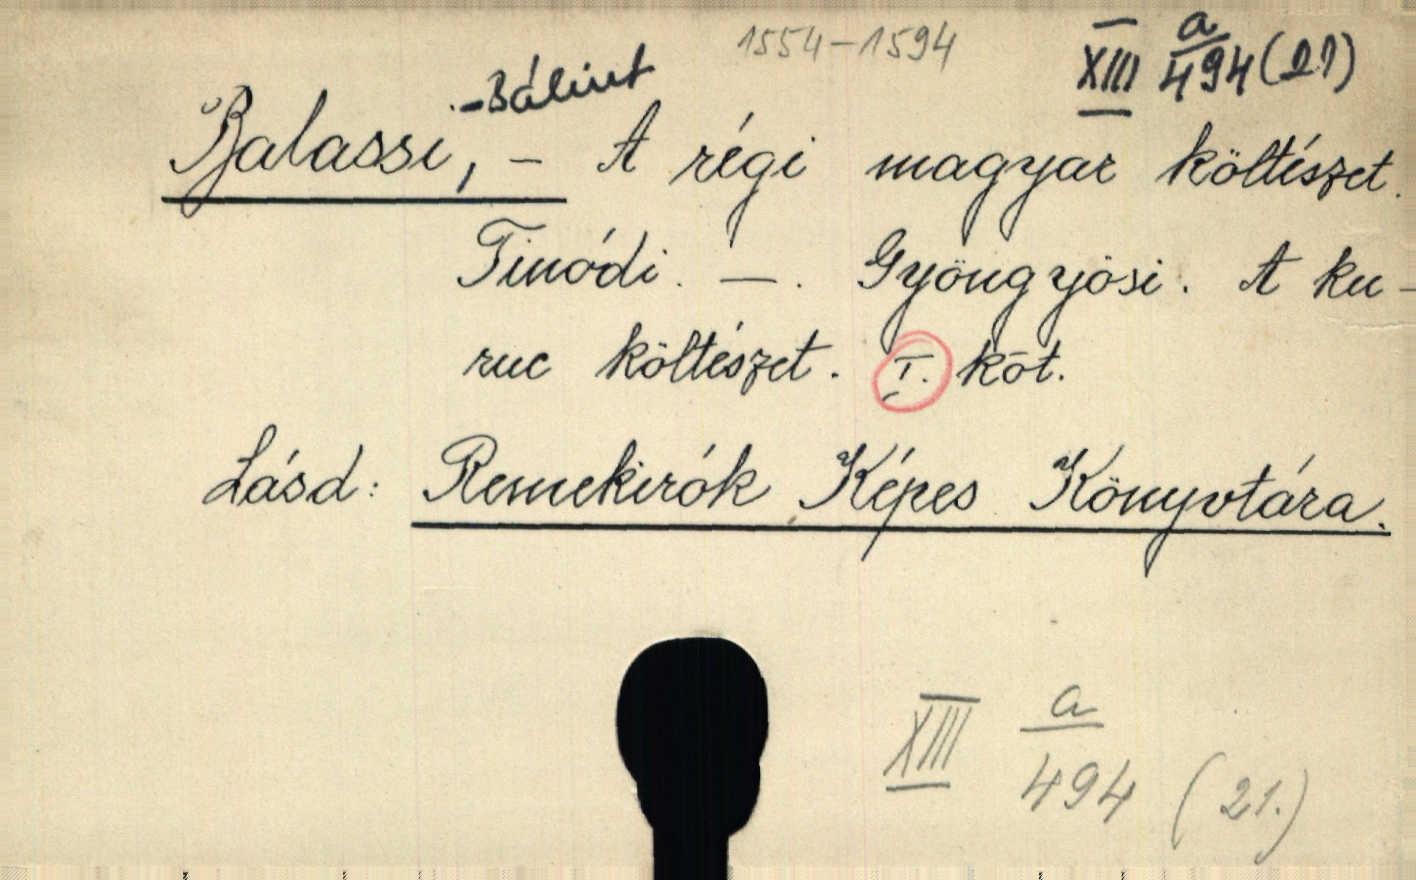 1554-1594
XIII a/494 (21)
Balassi, -Bálint - A régi magyar költészet.
Tinódi. -. Gyöngyösi. A ku-
ruc költészet. I. köt.
Lásd: Remekirók Képes Könyvtára.
XIII a/494 (21.)